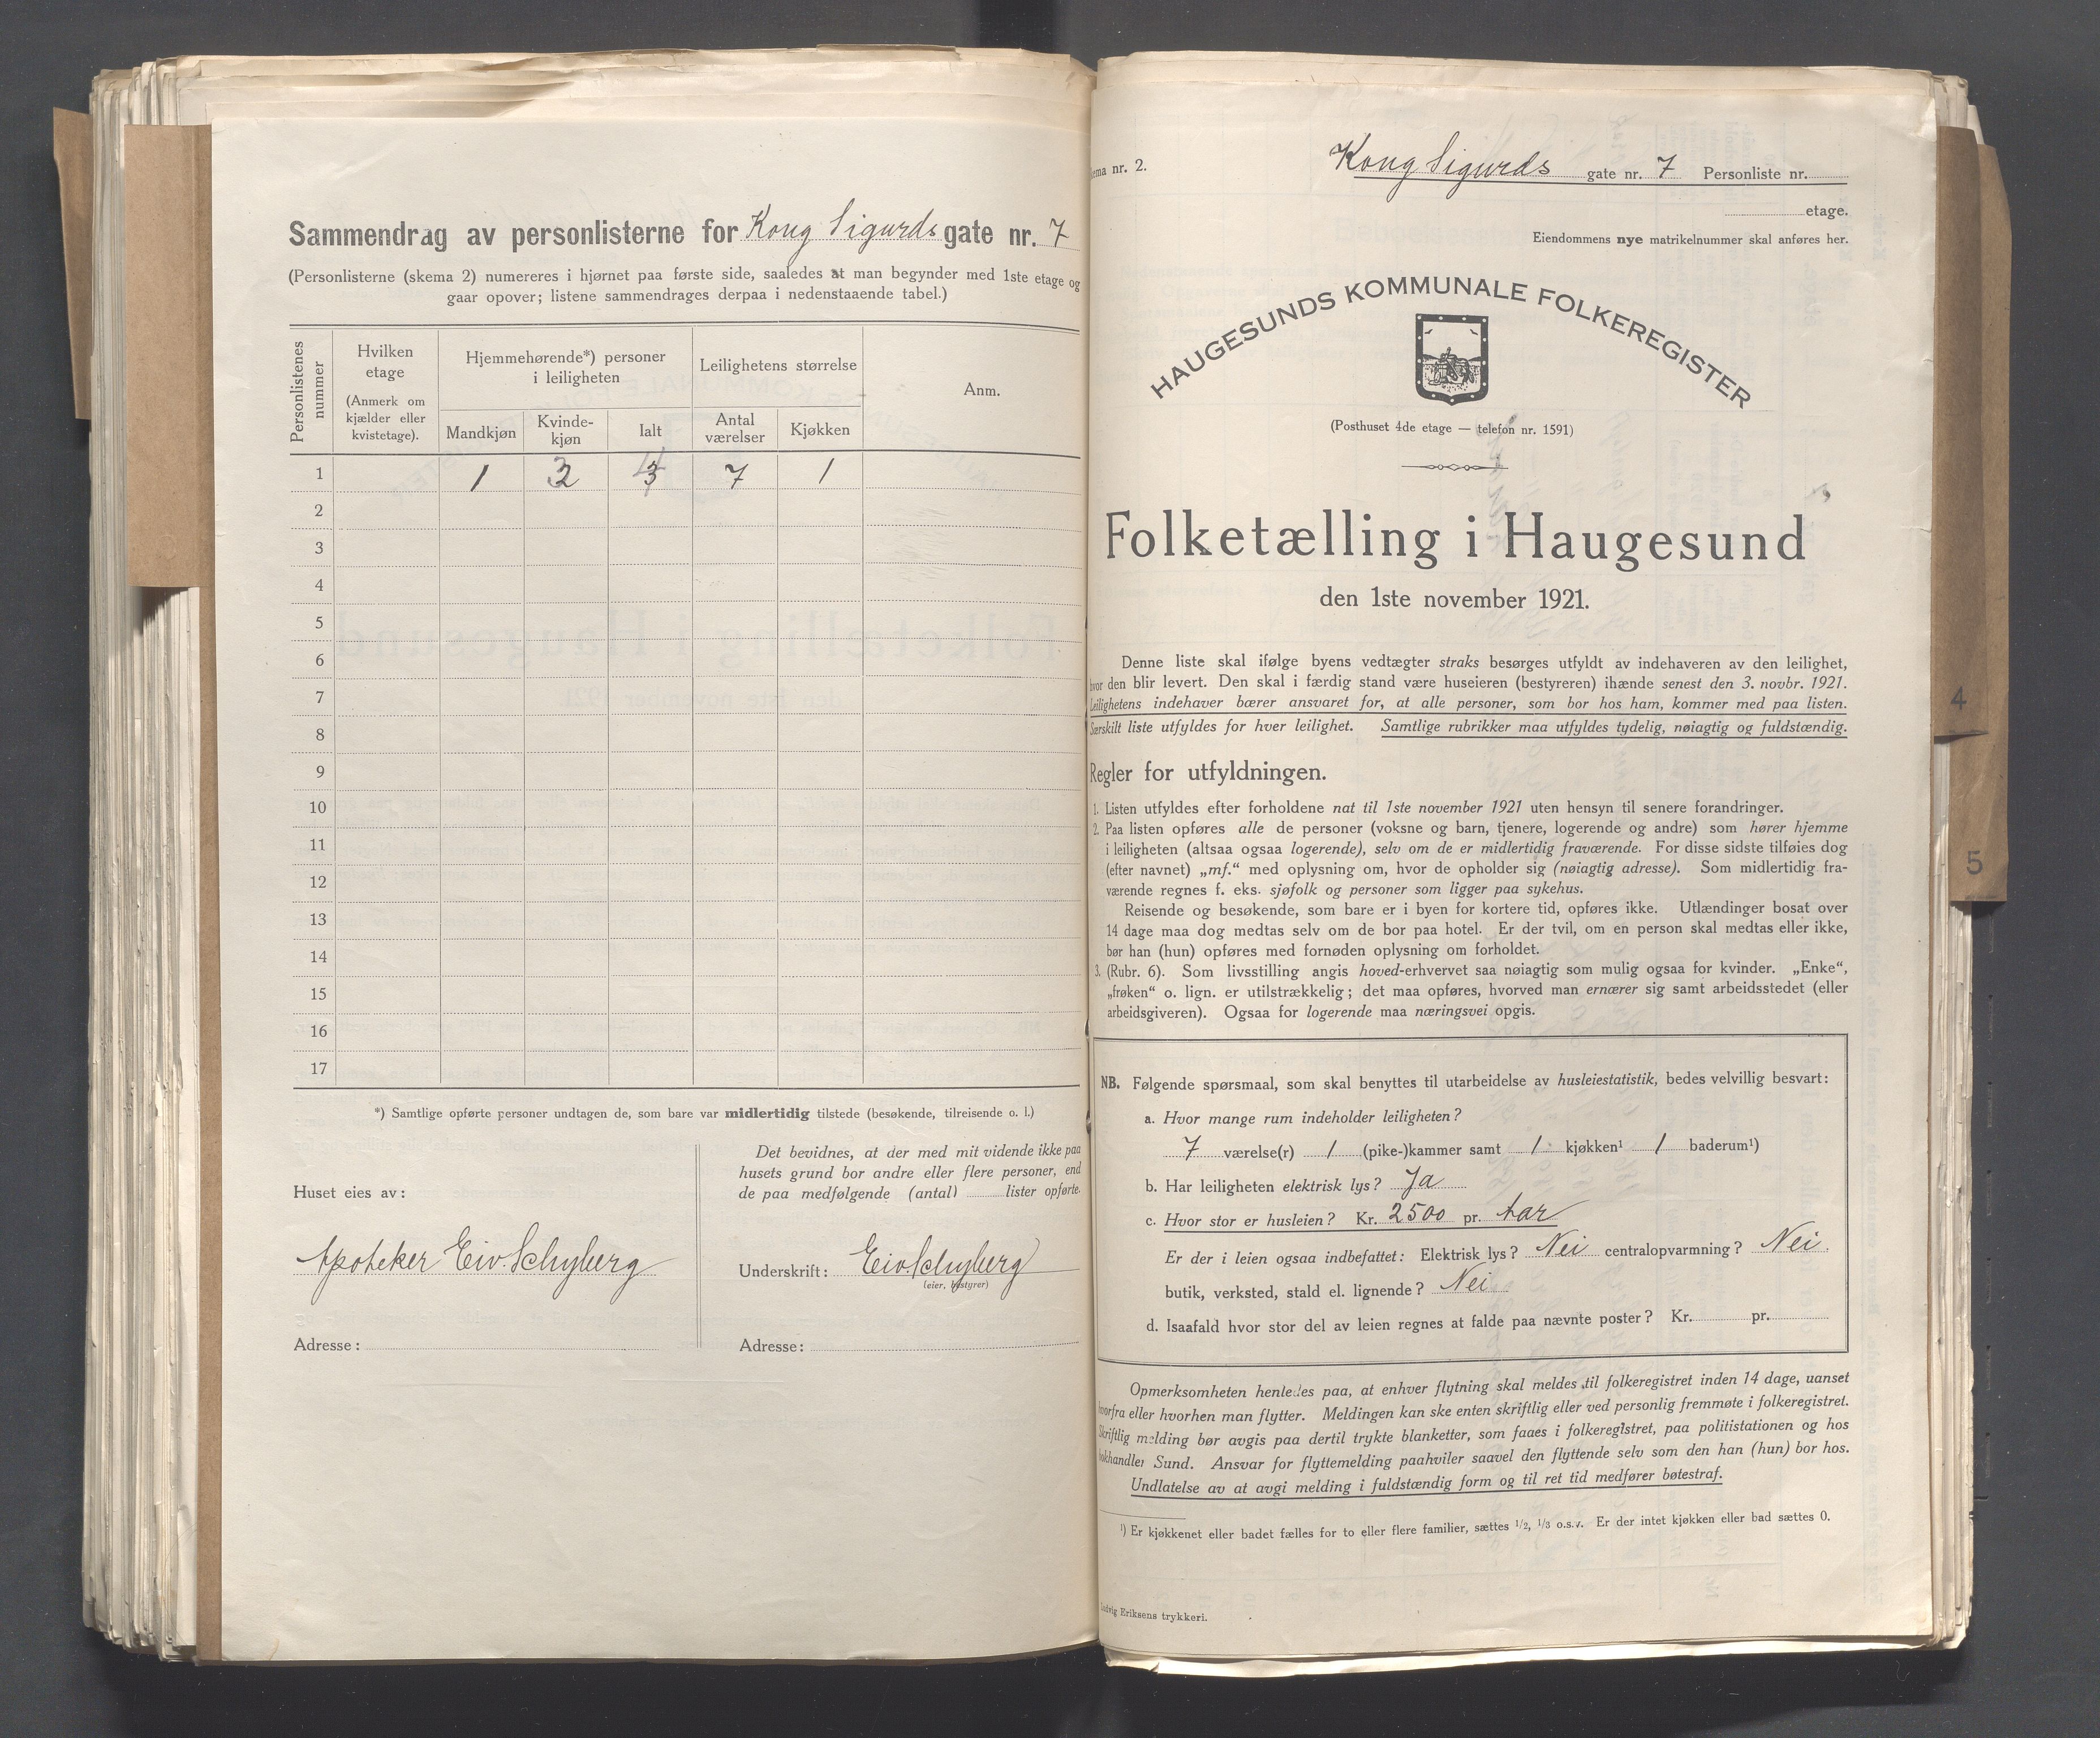 Sammendrag av personlisterne for Kong Sigurds gate nr. 7
(Personlisterne (skema 2) numereres i hjørnet paa første side, saaledes at man begynder med 1ste etage og
gaar opover; listene sammendrages derpaa i nedenstaaende tabel.)
Personlistenes nummer
Hvilken etage
(Anmerk om kjælder eller kvistetage).
Hjemmehørende*) personer i leiligheten
Leilighetens størrelse
Anm.
Mandkjøn
Kvinde-kjøn
Ialt
Antal værelser
Kjøkken
1 1 3 4 7 1
2
3
4
5
6
7
8
9
10
11
12
13
14
15
16
17
*) Samtlige opførte personer undtagen de, som bare var midlertidig tilstede (besøkende, tilreisende o. l.)
Huset eies av:
Apoteker Eiv. Schyberg
Adresse:
Det bevidnes, at der med mit vidende ikke paa
husets grund bor andre eller flere personer, end
de paa medfølgende (antal) lister opførte.
Underskrift: Eiv. Schyberg
(eier, bestyrer)
Adresse:
ema nr. 2.
Kong Sigurds gate nr. 7 Personliste nr.
etage.
Eiendommens nye matrikelnummer skal anføres her.
HAUGESUNDS KOMMUNALE FOLKEREGISTER
(Posthuset 4de etage — telefon nr. 1591)
Folketælling i Haugesund
den 1ste november 1921.
Denne liste skal ifølge byens vedtægter straks besørges utfyldt av indehaveren av den leilighet,
hvor den blir levert. Den skal i færdig stand være huseieren (bestyreren) ihænde senest den 3. novbr. 1921.
Leilighetens indehaver bærer ansvaret for, at alle personer, som bor hos ham, kommer med paa listen.
Særskilt liste utfyldes for hver leilighet. Samtlige rubrikker maa utfyldes tydelig, nøiagtig og fuldstændig.
Regler for utfyldningen.
1. Listen utfyldes efter forholdene nat til 1ste november 1921 uten hensyn til senere forandringer.
2. Paa listen opføres alle de personer (voksne og barn, tjenere, logerende og andre) som hører hjemme
i leiligheten (altsaa ogsaa logerende), selv om de er midlertidig fraværende. For disse sidste tilføies dog
(efter navnet) „mf.“ med oplysning om, hvor de opholder sig (nøiagtig adresse). Som midlertidig fra-
værende regnes f. eks. sjøfolk og personer som ligger paa sykehus.
Reisende og besøkende, som bare er i byen for kortere tid, opføres ikke. Utlændinger bosat over
14 dage maa dog medtas selv om de bor paa hotel. Er der tvil, om en person skal medtas eller ikke,
bør han (hun) opføres med fornøden oplysning om forholdet.
3. (Rubr. 6). Som livsstilling angis hoved-erhvervet saa nøiagtig som mulig ogsaa for kvinder. „Enke“,
„frøken“ o. lign. er utilstrækkelig; det maa opføres, hvorved man ernærer sig samt arbeidsstedet (eller
arbeidsgiveren). Ogsaa for logerende maa næringsvei opgis.
NB. Følgende spørsmaal, som skal benyttes til utarbeidelse av husleiestatistik, bedes velvillig besvart:
a. Hvor mange rum indeholder leiligheten?
7 værelse(r) 1 (pike-)kammer samt 1 kjøkken¹ 1 baderum¹)
b. Har leiligheten elektrisk lys? Ja
c. Hvor stor er husleien? Kr. 2500 pr. aar
Er der i leien ogsaa indbefattet: Elektrisk lys? Nei centralopvarmning? Nei.
butik, verksted, stald el. lignende? Nei
d. Isaafald hvor stor del av leien regnes at falde paa nævnte poster? Kr. pr.
Opmerksomheten henledes paa, at enhver flytning skal meldes til folkeregistret inden 14 dage, uanset
hvorfra eller hvorhen man flytter. Meldingen kan ske enten skriftlig eller ved personlig fremmøte i folkeregistret.
Skriftlig melding bør avgis paa dertil trykte blanketter, som faaes i folkeregistret, paa politistationen og hos
bokhandler Sund. Ansvar for flyttemelding paahviler saavel den flyttende selv som den han (hun) bor hos.
Undlatelse av at avgi melding i fuldstændig form og til ret tid medfører bøtestraf.
¹) Er kjøkkenet eller badet fælles for to eller flere familier, sættes 1/2, 1/3 o.s.v. Er der intet kjøkken eller bad sættes 0.
Ludvig Eriksens trykkeri.
4
5